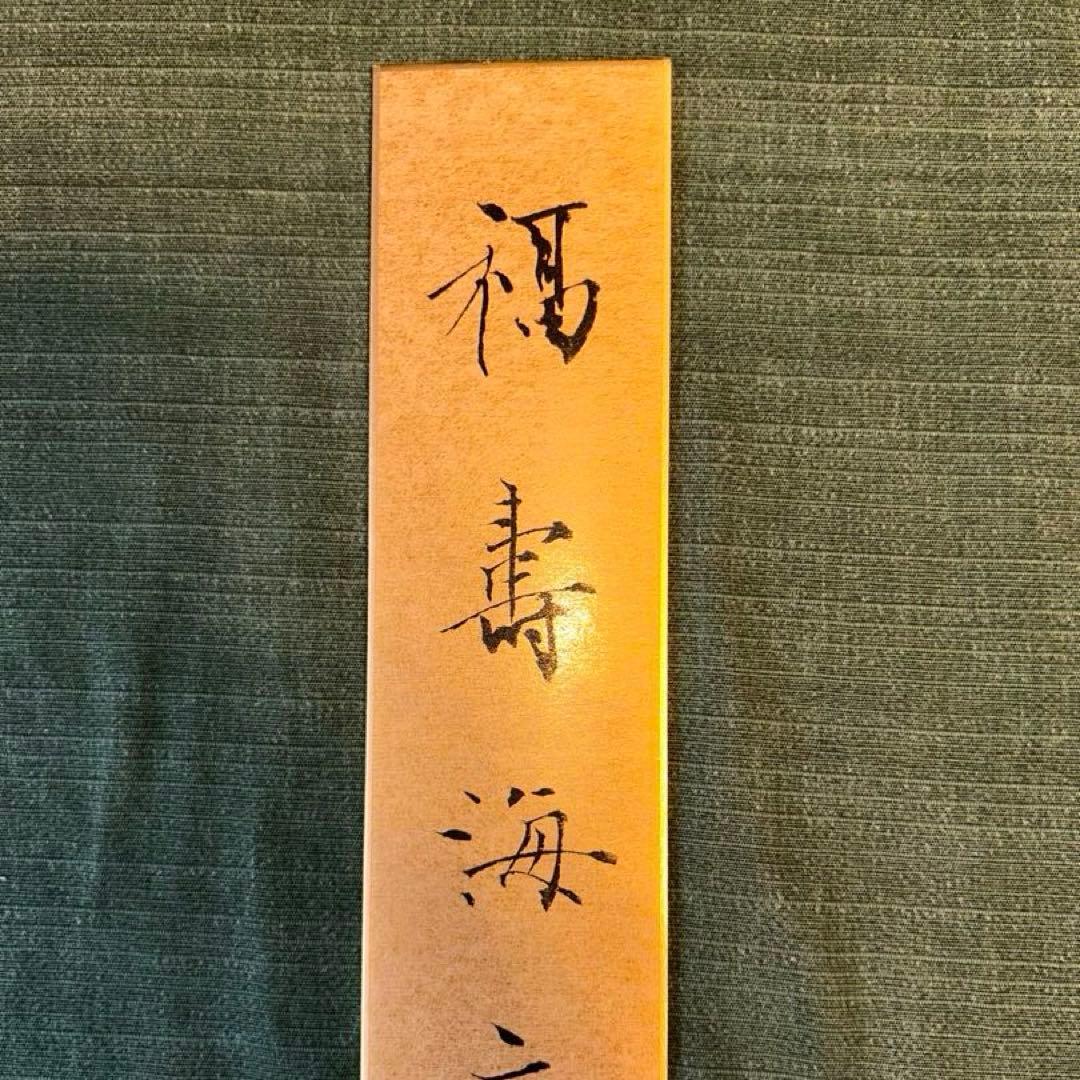 福壽海